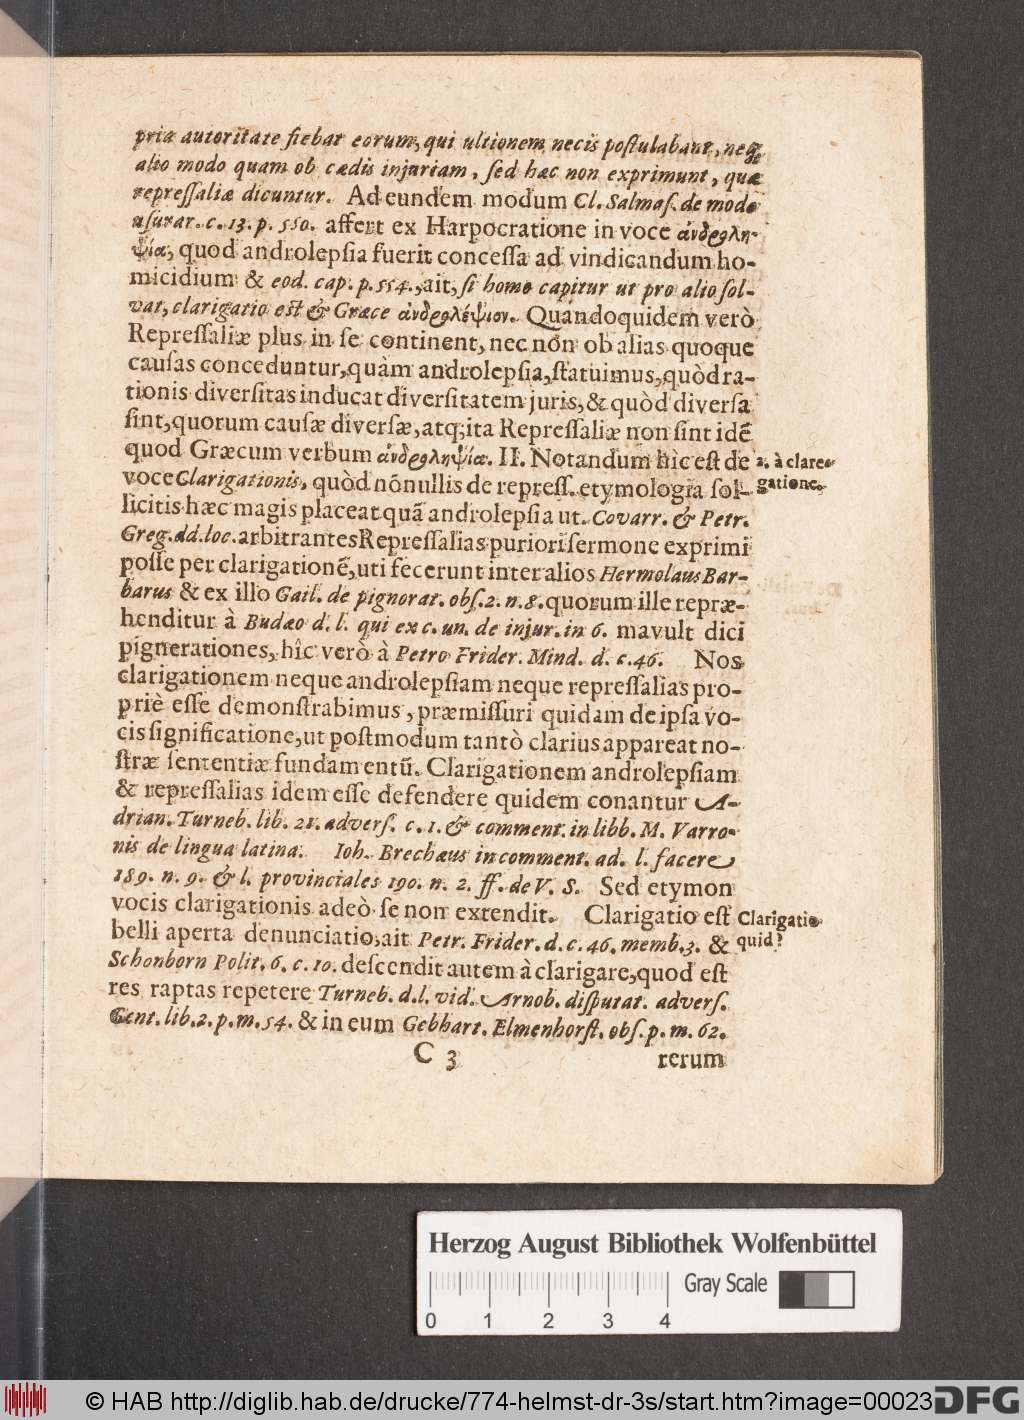 pria autoritate fiebat eorum, qui ultionem necis postulabant, neq;
alio modo quam ob cædis injuriam, sed hæc non exprimunt, quæ
repressaliæ dicuntur. Ad eundem modum Cl. Salmas. de modo
usurar. c. 13. p. 550. affert ex Harpocratione in voce ἀνδρολη-
ψία, quod androlepsia fuerit concessa ad vindicandum ho-
micidium & eod. cap. p. 554., ait, si homo capitur ut pro alio sol-
vat, clarigatio est & Græce ἀνδρολέψιον. Quandoquidem verò
Repressaliæ plus in se continent, nec non ob alias quoque
causas conceduntur, quàm androlepsia, statuimus, quòd ra-
tionis diversitas inducat diversitatem juris, & quòd diversa
sint, quorum causæ diversæ, atq; ita Repressaliæ non sint idē
quod Græcum verbum ἀνδροληψία. II. Notandum hîc est de
2. à clare-
gatione.
voce Clarigationis, quòd nōnullis de repress. etymologia sol-
licitis hæc magis placeat quā androlepsia ut. Covarr. & Petr.
Greg. dd. loc. arbitrantes Repressalias puriori sermone exprimi
posse per clarigationē, uti fecerunt inter alios Hermolaus Bar-
barus & ex illo Gail. de pignorat. obs. 2. n. 8. quorum ille repræ-
henditur à Budæo d. l. qui ex c. un. de injur. in 6. mavult dici
pignerationes, hîc verò à Petro Frider. Mind. d. c. 46. Nos
clarigationem neque androlepsiam neque repressalias pro-
priè esse demonstrabimus, præmissuri quidam de ipsa vo-
cis significatione, ut postmodum tantò clarius appareat no-
stræ sententiæ fundamentū. Clarigationem androlepsiam
& repressalias idem esse defendere quidem conantur A-
drian. Turneb. lib. 21. advers. c. 1. & comment. in libb. M. Varro-
nis de lingua latina. Ioh. Brechæus in comment. ad. l. facere
189. n. 9. & l. provinciales 190. n. 2. ff. de V. S. Sed etymon
vocis clarigationis adeò se non extendit. Clarigatio est
Clarigatio
quid?
belli aperta denunciatio, ait Petr. Frider. d. c. 46. memb. 3. &
Schonborn Polit. 6. c. 10. descendit autem à clarigare, quod est
res raptas repetere Turneb. d. l. vid. Arnob. disputat. advers.
Gent. lib. 2. p. m. 54. & in eum Gebhart. Elmenhorst. obs. p. m. 62.
C 3
rerum
Herzog August Bibliothek Wolfenbüttel
Gray Scale
0 1 2 3 4
© HAB http://diglib.hab.de/drucke/774-helmst-dr-3s/start.htm?image=00023
DFG